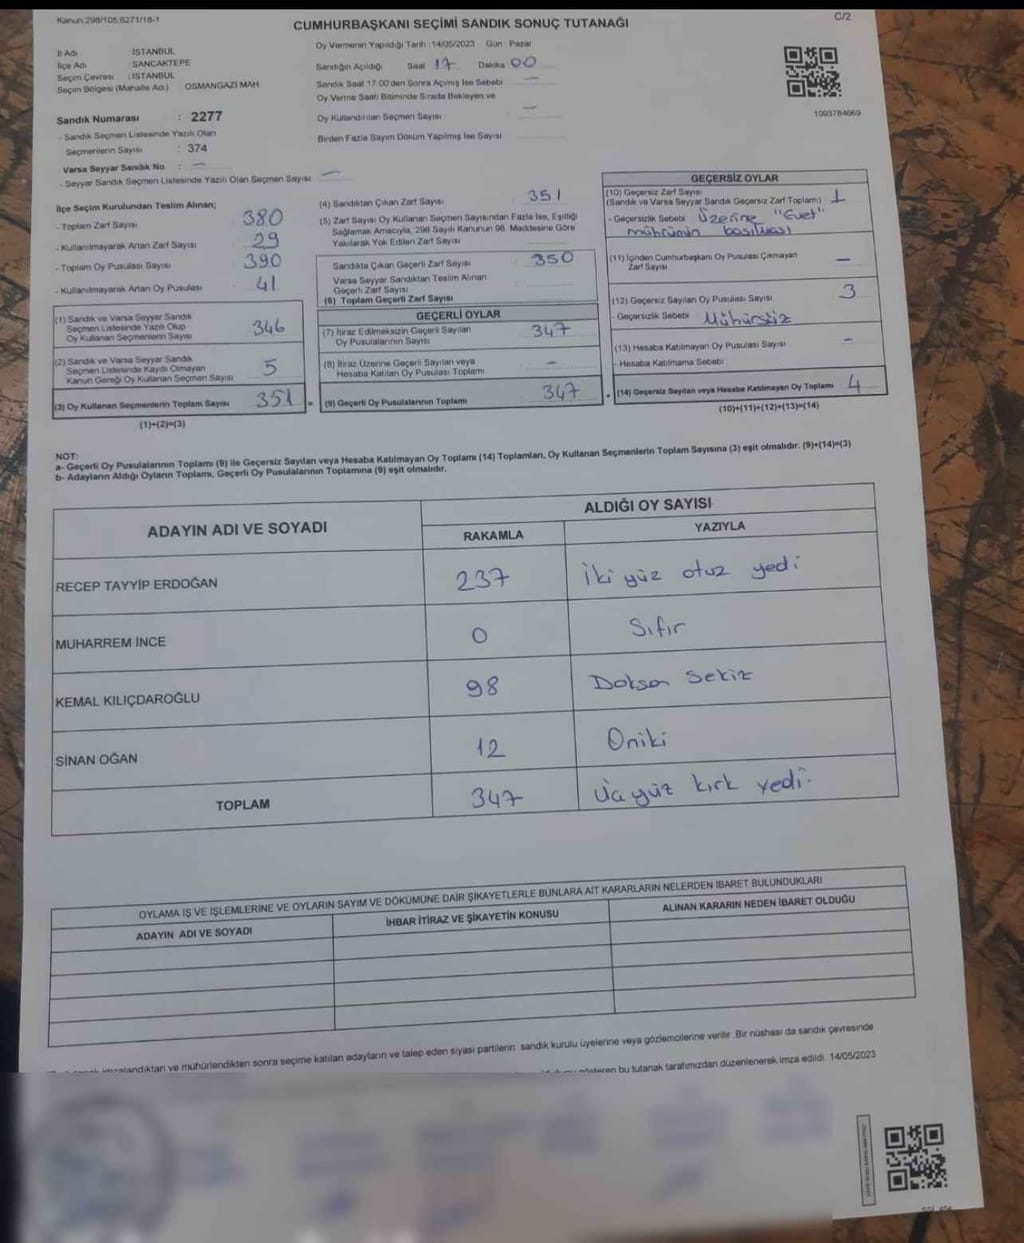 Kanun:298/105,6271/18-1
C/2
CUMHURBAŞKANI SEÇİMİ SANDIK SONUÇ TUTANAĞI
İl Adı : İSTANBUL
İlçe Adı : SANCAKTEPE
Seçim Çevresi : İSTANBUL
Seçim Bölgesi (Mahalle Adı) OSMANGAZİ MAH.
Sandık Numarası : 2277
- Sandık Seçmen Listesinde Yazılı Olan
Seçmenlerin Sayısı : 374
Varsa Seyyar Sandık No : —
- Seyyar Sandık Seçmen Listesinde Yazılı Olan Seçmen Sayısı —
Oy Vermenin Yapıldığı Tarih : 14/05/2023 Gün : Pazar
Sandığın Açıldığı Saat 17 Dakika 00
Sandık Saat 17.00'den Sonra Açılmış İse Sebebi —
Oy Verme Saati Bitiminde Sırada Bekleyen ve
Oy Kullandırılan Seçmen Sayısı —
Birden Fazla Sayım Döküm Yapılmış İse Sayısı
1093784669
İlçe Seçim Kurulundan Teslim Alınan;
- Toplam Zarf Sayısı 380
- Kullanılmayarak Artan Zarf Sayısı 29
- Toplam Oy Pusulası Sayısı 390
- Kullanılmayarak Artan Oy Pusulası 41
(1) Sandık ve Varsa Seyyar Sandık
Seçmen Listesinde Yazılı Olup
Oy Kullanan Seçmenlerin Sayısı 346
(2) Sandık ve Varsa Seyyar Sandık
Seçmen Listesinde Kayıtlı Olmayan
Kanun Gereği Oy Kullanan Seçmen Sayısı 5
(3) Oy Kullanan Seçmenlerin Toplam Sayısı 351 =
(1)+(2)=(3)
(4) Sandıktan Çıkan Zarf Sayısı 351
(5) Zarf Sayısı Oy Kullanan Seçmen Sayısından Fazla İse, Eşitliği
Sağlamak Amacıyla, 298 Sayılı Kanunun 98. Maddesine Göre
Yakılarak Yok Edilen Zarf Sayısı
Sandıkta Çıkan Geçerli Zarf Sayısı 350
Varsa Seyyar Sandıktan Teslim Alınan
Geçerli Zarf Sayısı
(6) Toplam Geçerli Zarf Sayısı
GEÇERLİ OYLAR
(7) İtiraz Edilmeksizin Geçerli Sayılan
Oy Pusulalarının Sayısı 347
(8) İtiraz Üzerine Geçerli Sayılan veya
Hesaba Katılan Oy Pusulası Toplamı —
(9) Geçerli Oy Pusulalarının Toplamı 347 +
GEÇERSİZ OYLAR
(10) Geçersiz Zarf Sayısı
(Sandık ve Varsa Seyyar Sandık Geçersiz Zarf Toplamı) 1
- Geçersizlik Sebebi Üzerine "Evet"
mührünün basılması
(11) İçinden Cumhurbaşkanı Oy Pusulası Çıkmayan
Zarf Sayısı —
(12) Geçersiz Sayılan Oy Pusulası Sayısı 3
- Geçersizlik Sebebi Mühürsüz
(13) Hesaba Katılmayan Oy Pusulası Sayısı —
- Hesaba Katılmama Sebebi
(14) Geçersiz Sayılan veya Hesaba Katılmayan Oy Toplamı 4
(10)+(11)+(12)+(13)=(14)
NOT:
a- Geçerli Oy Pusulalarının Toplamı (9) ile Geçersiz Sayılan veya Hesaba Katılmayan Oy Toplamı (14) Toplamları, Oy Kullanan Seçmenlerin Toplam Sayısına (3) eşit olmalıdır. (9)+(14)=(3)
b- Adayların Aldığı Oyların Toplamı, Geçerli Oy Pusulalarının Toplamına (9) eşit olmalıdır.
ADAYIN ADI VE SOYADI
ALDIĞI OY SAYISI
RAKAMLA YAZIYLA
RECEP TAYYİP ERDOĞAN 237 İki yüz otuz yedi
MUHARREM İNCE 0 Sıfır
KEMAL KILIÇDAROĞLU 98 Doksan Sekiz
SİNAN OĞAN 12 Oniki
TOPLAM 347 Üç yüz kırk yedi
OYLAMA İŞ VE İŞLEMLERİNE VE OYLARIN SAYIM VE DÖKÜMÜNE DAİR ŞİKAYETLERLE BUNLARA AİT KARARLARIN NELERDEN İBARET BULUNDUKLARI
ADAYIN ADI VE SOYADI İHBAR İTİRAZ VE ŞİKAYETİN KONUSU ALINAN KARARIN NEDEN İBARET OLDUĞU
imzalandıktan ve mühürlendikten sonra seçime katılan adayların ve talep eden siyasi partilerin sandık kurulu üyelerine veya gözlemcilerine verilir. Bir nüshası da sandık çevresinde
gösteren bu tutanak tarafımızdan düzenlenerek imza edildi. 14/05/2023